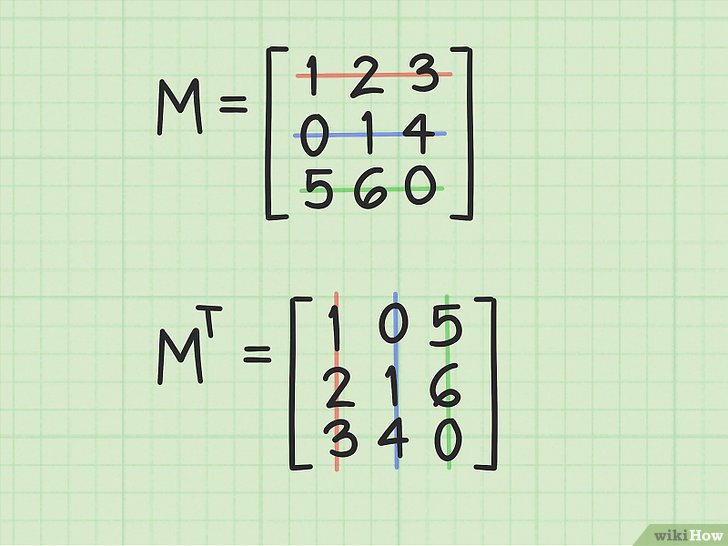 M = [1 2 3
0 1 4
5 6 0]
M^T = [1 0 5
2 1 6
3 4 0]
wikiHow